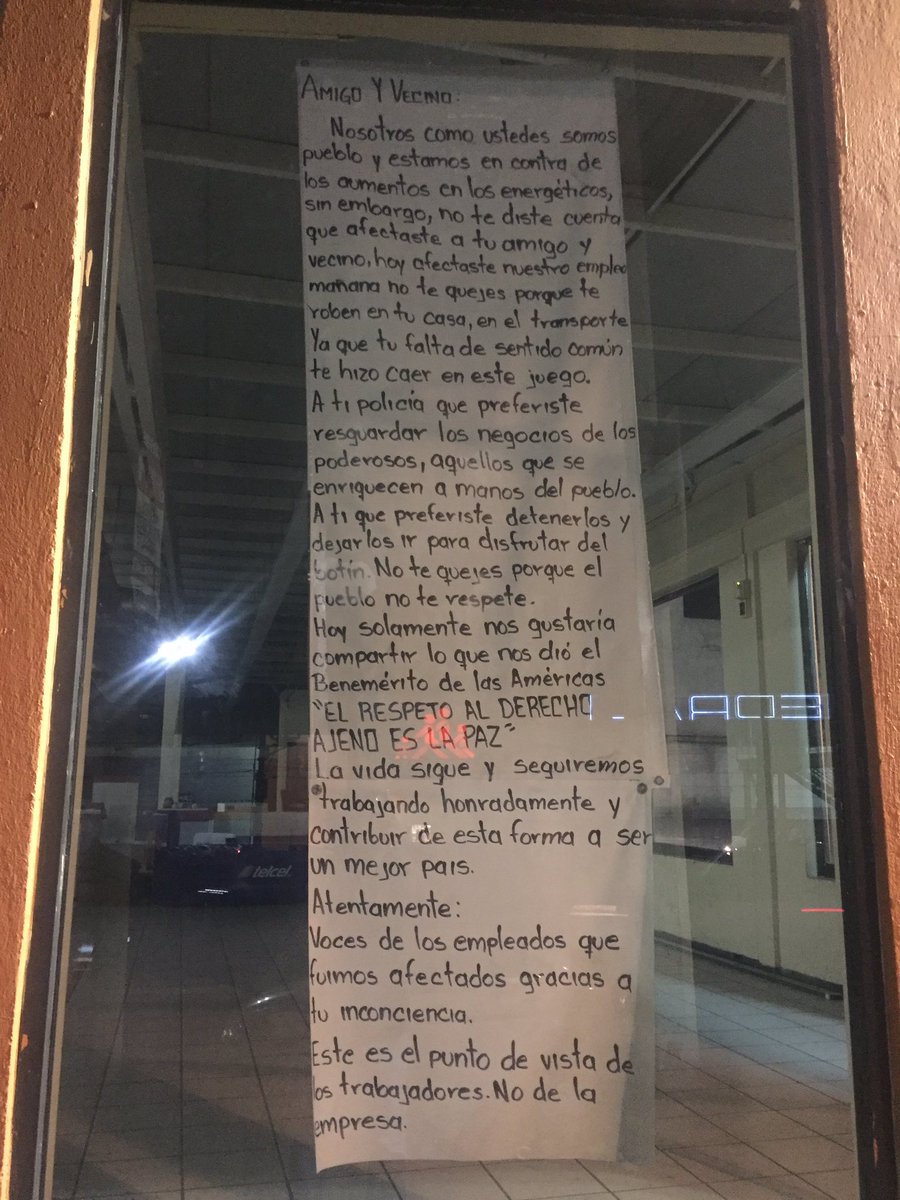 AMIGO Y VECINO:
Nosotros como ustedes somos
pueblo y estamos en contra de
los aumentos en los energéticos,
sin embargo, no te diste cuenta
que afectaste a tu amigo y
vecino, hoy afectaste nuestro empleo
mañana no te quejes porque te
roben en tu casa, en el transporte
Ya que tu falta de sentido común
te hizo caer en este juego.
A ti policía que preferiste
resguardar los negocios de los
poderosos, aquellos que se
enriquecen a manos del pueblo.
A ti que preferiste detenerlos y
dejarlos ir para disfrutar del
botín. No te quejes porque el
pueblo no te respete.
Hoy solamente nos gustaría
compartir lo que nos dió el
Benemérito de las Américas
"EL RESPETO AL DERECHO
AJENO ES LA PAZ"
La vida sigue y seguiremos
trabajando honradamente y
contribuir de esta forma a ser
un mejor pais.
Atentamente:
Voces de los empleados que
fuimos afectados gracias a
tu inconciencia.
Este es el punto de vista de
los trabajadores. No de la
empresa.
telcel